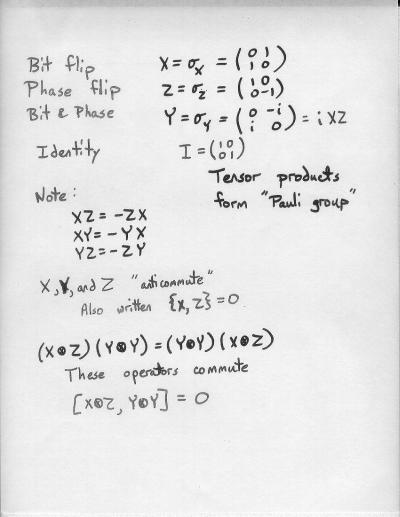 Bit flip X = σx = (0 1 / 1 0)
Phase flip Z = σz = (1 0 / 0 -1)
Bit & Phase Y = σy = (0 -i / i 0) = i XZ
Identity I = (1 0 / 0 1)
Tensor products
form "Pauli group"
Note:
XZ = -ZX
XY = -YX
YZ = -ZY
X, Y, and Z "anticommute"
Also written {X, Z} = 0
(X⊗Z)(Y⊗Y) = (Y⊗Y)(X⊗Z)
These operators commute
[X⊗Z, Y⊗Y] = 0